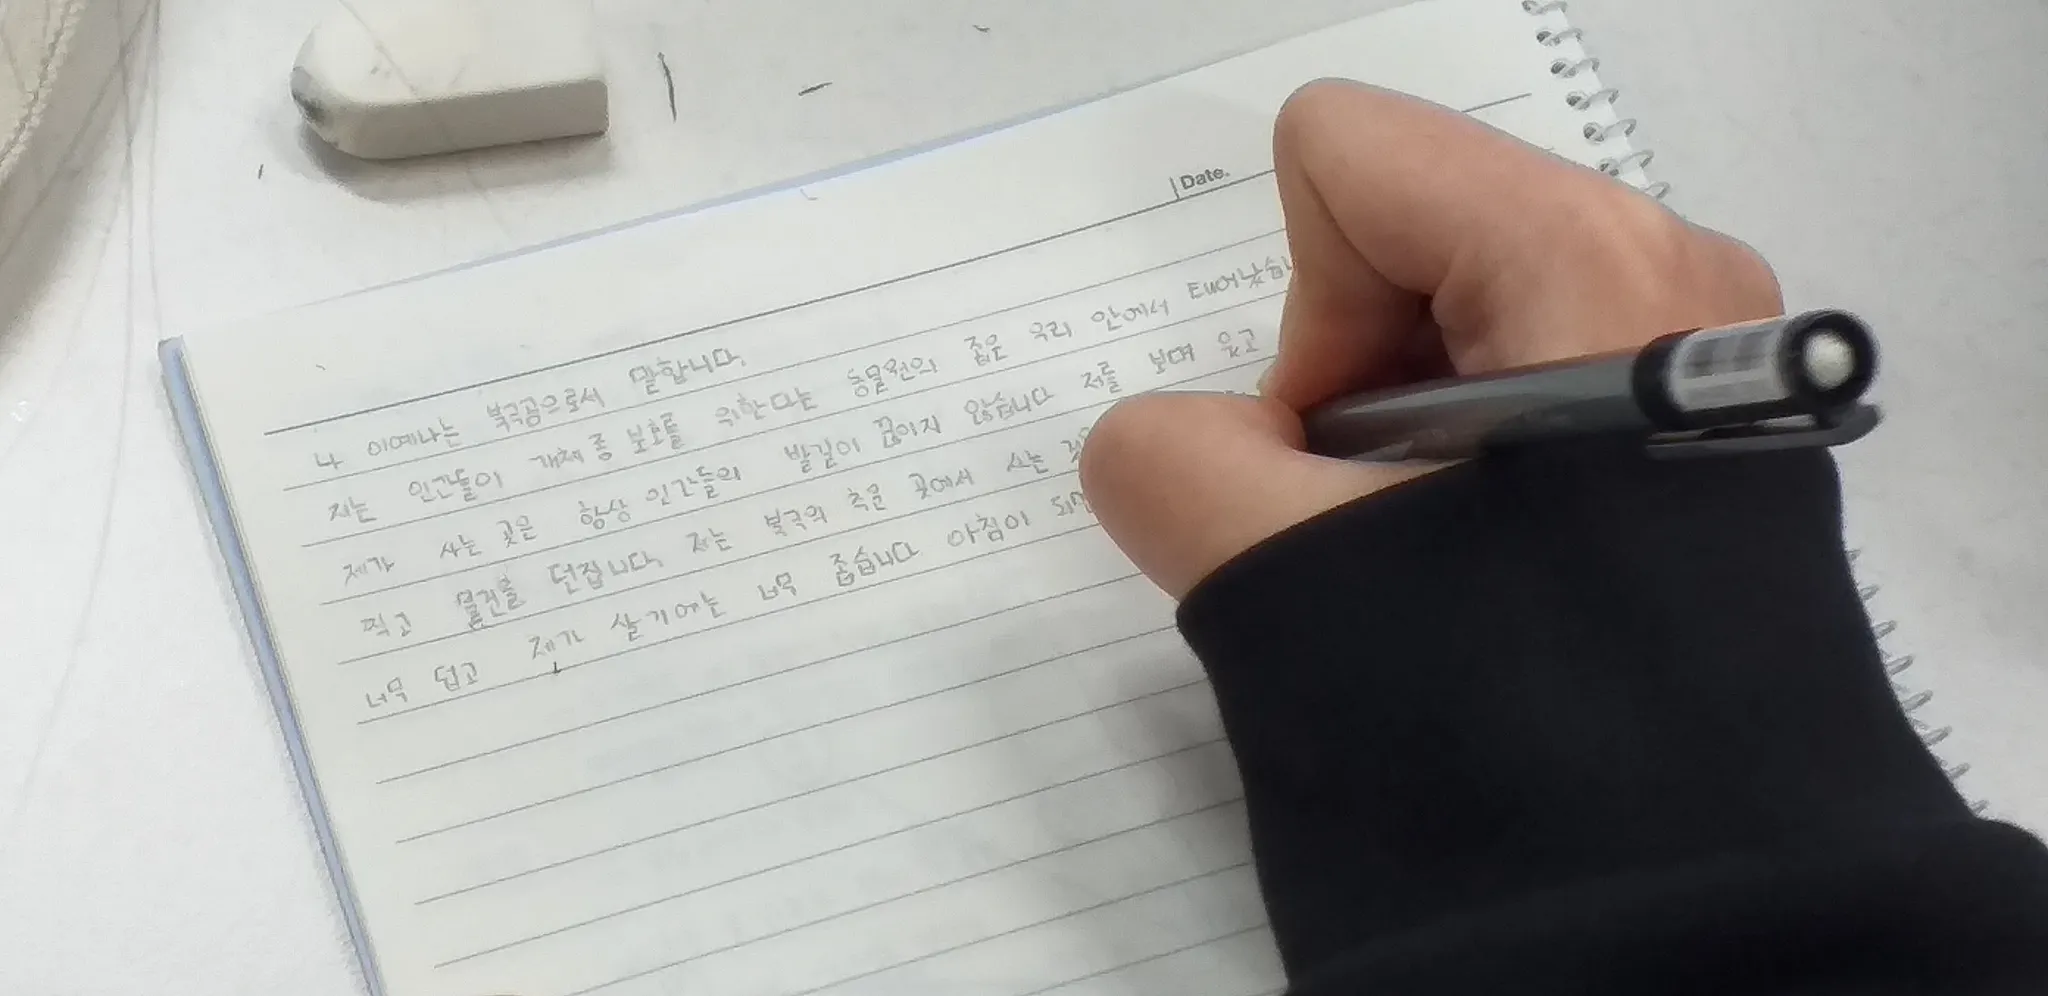 Date.
나 이예나는 북극곰으로서 말합니다.
저는 인간들이 개체 종 보호를 위한다는 동물원의 좁은 우리 안에서 태어났습니
제가 사는 곳은 항상 인간들의 발길이 끊이지 않습니다 저를 보며 웃고
찍고 물건을 던집니다. 저는 북극의 추운 곳에서 사는
너무 덥고 제가 살기에는 너무 좁습니다 아침이 되면